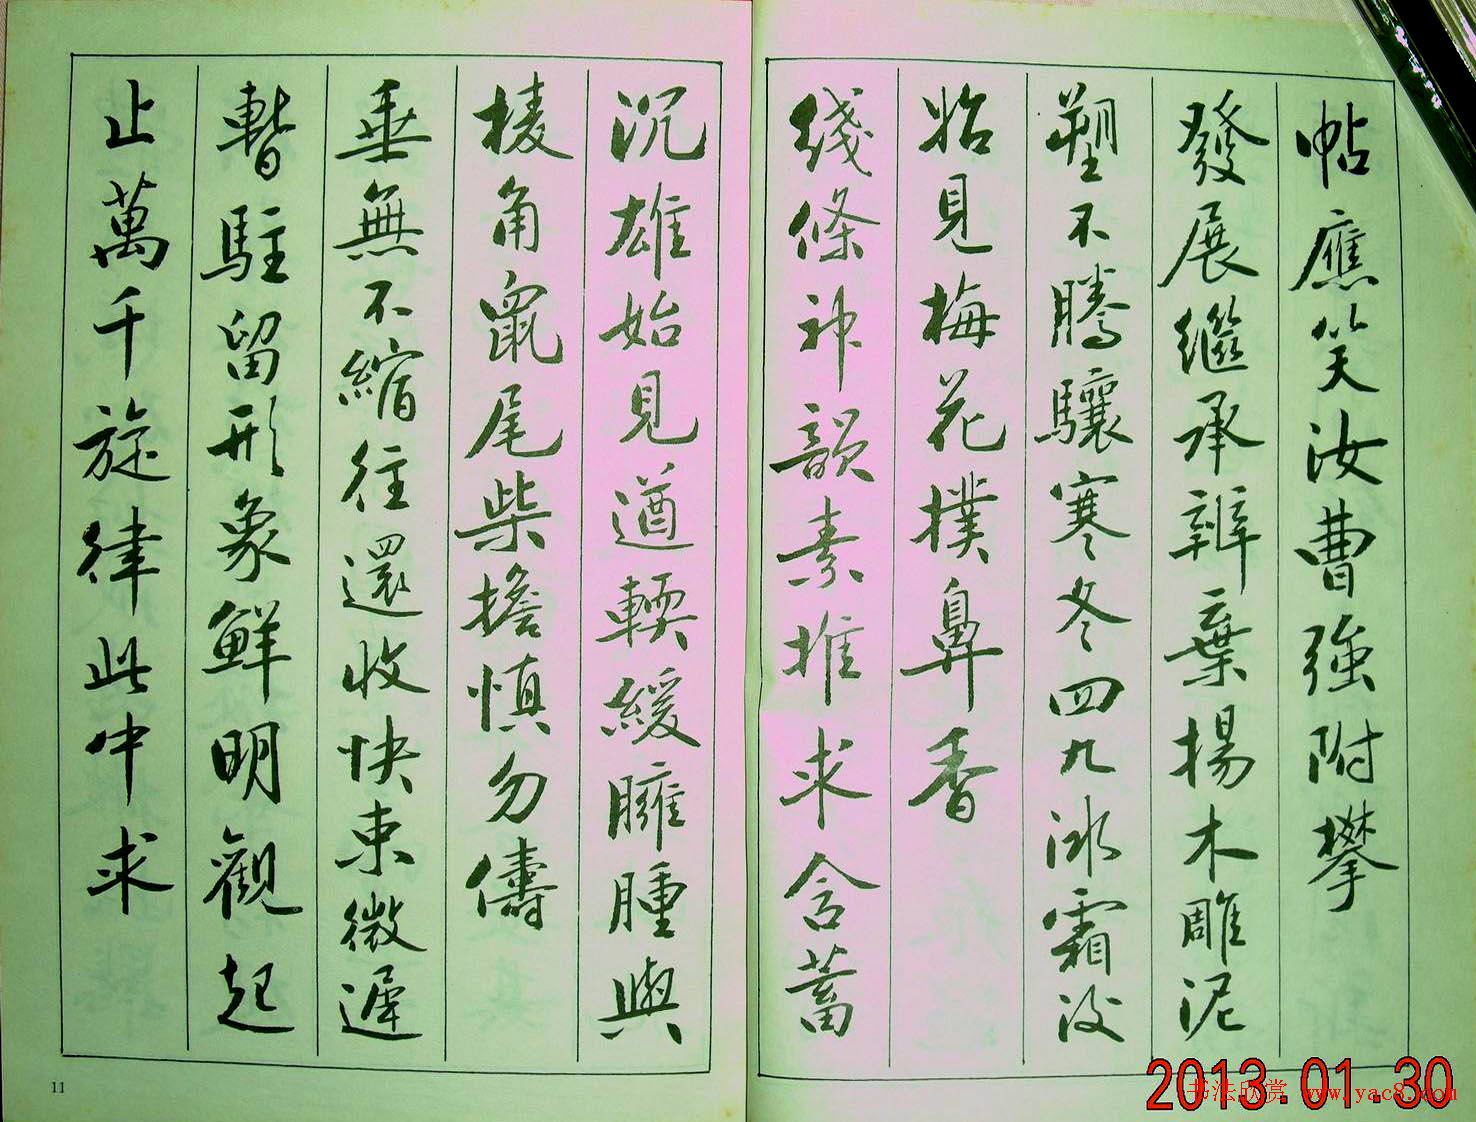 帖應笑汝曹強附攀
發展繼承辨棄揚木雕泥
塑不騰驤寒冬四九冰霜後
始見梅花撲鼻香
綫條神韻素推求含蓄
沉雄始見遒輭緩臃腫與
棱角鼠尾柴擔慎勿儔
垂無不縮往還收快東微遲
暫駐留形象鮮明觀起
止萬千旋律此中求
11
2013.01.30
书法欣赏 www.yac8.com